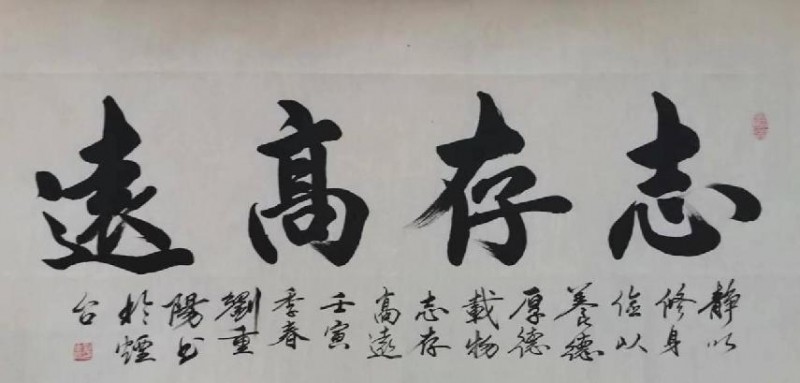 志存高遠
靜以
修身
儉以
養德
厚德
載物
志存
高遠
壬寅
季春
劉重
陽書
於煙
台